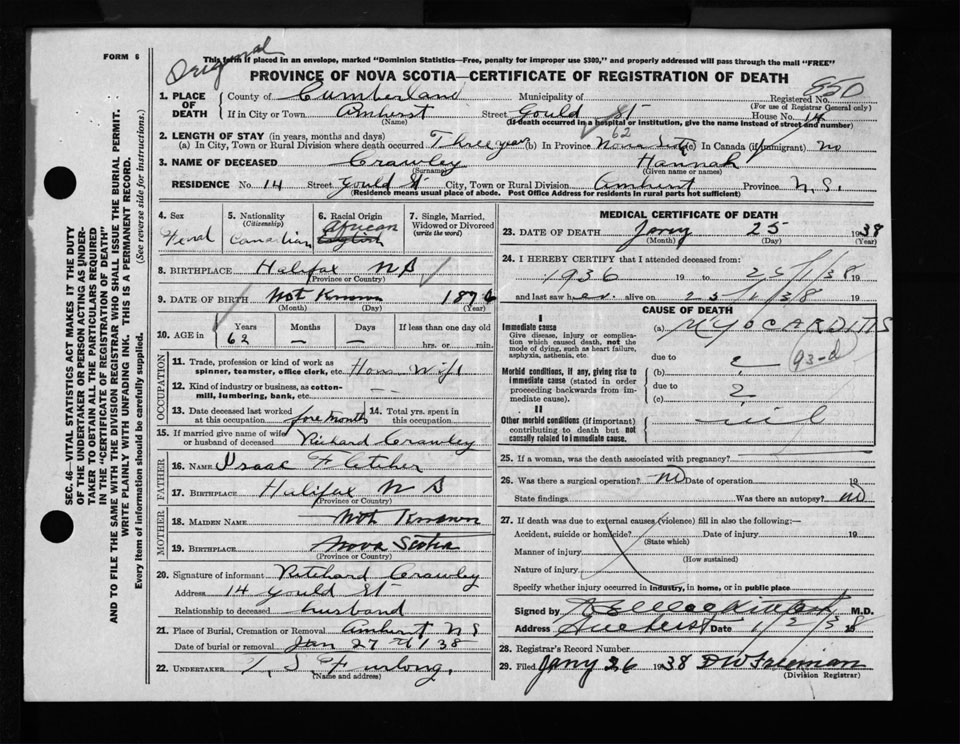 FORM 6
Original
This form if placed in an envelope, marked "Dominion Statistics—Free, penalty for improper use $300," and properly addressed will pass through the mail "FREE"
PROVINCE OF NOVA SCOTIA—CERTIFICATE OF REGISTRATION OF DEATH
850
1. PLACE OF DEATH
County of Cumberland Municipality of Registered No.
(For use of Registrar General only)
If in City or Town Amherst Street Gould St House No. 14
(Name) (If death occurred in a hospital or institution, give the name instead of street and number)
2. LENGTH OF STAY (in years, months and days) 62
(a) In City, Town or Rural Division where death occurred Three years (b) In Province Nova Scotia (c) In Canada (if immigrant) no
3. NAME OF DECEASED Crawley Hannah
(Surname) (Given name or names)
RESIDENCE No. 14 Street Gould St City, Town or Rural Division Amherst Province N.S.
(Residence means usual place of abode. Post Office Address for residents in rural parts not sufficient)
4. Sex
Femal
5. Nationality
(Citizenship)
Canadian
6. Racial Origin
African
English
7. Single, Married, Widowed or Divorced
(write the word)
8. BIRTHPLACE Halifax N S
(Province or Country)
9. DATE OF BIRTH Not Known 1876
(Month) (Day) (Year)
10. AGE in
Years Months Days If less than one day old
62 — — hrs. or min.
OCCUPATION
11. Trade, profession or kind of work as spinner, teamster, office clerk, etc. Hous Wife
12. Kind of industry or business, as cotton-mill, lumbering, bank, etc. —
13. Date deceased last worked at this occupation months
14. Total yrs. spent in this occupation
15. If married give name of wife or husband of deceased Richard Crawley
FATHER
16. NAME Isaac Fletcher
17. BIRTHPLACE Halifax N S
(Province or Country)
MOTHER
18. MAIDEN NAME Not Known
19. BIRTHPLACE Nova Scotia
(Province or Country)
20. Signature of informant Ritchard Crawley
Address 14 Gould St
Relationship to deceased husband
21. Place of Burial, Cremation or Removal Amherst N S
Date of burial or removal Jan 27 1938
22. UNDERTAKER Furlong.
(Name and address)
MEDICAL CERTIFICATE OF DEATH
23. DATE OF DEATH Jany 25 1938
(Month) (Day) (Year)
24. I HEREBY CERTIFY that I attended deceased from:
1936 19 to 25/1/38 19
and last saw her alive on 25/1/38 19
CAUSE OF DEATH
I
Immediate cause
Give disease, injury or complication which caused death, not the mode of dying, such as heart failure, asphyxia, asthenia, etc.
(a) MYOCARDITIS
due to 93-d
Morbid conditions, if any, giving rise to immediate cause (stated in order proceeding backwards from immediate cause).
(b) ?
due to
(c) ?
II
Other morbid conditions (if important) contributing to death but not causally related to immediate cause.
25. If a woman, was the death associated with pregnancy?
26. Was there a surgical operation? no Date of operation 19
State findings Was there an autopsy? no
27. If death was due to external causes (violence) fill in also the following:—
Accident, suicide or homicide? Date of injury 19
(State which)
Manner of injury
(How sustained)
Nature of injury
Specify whether injury occurred in industry, in home, or in public place
Signed by M.D.
Address Amherst Date 1/2/38 19
28. Registrar's Record Number
29. Filed Jany 26 1938 D W Freeman
(Division Registrar)
SEC. 46—VITAL STATISTICS ACT MAKES IT THE DUTY
OF THE UNDERTAKER OR PERSON ACTING AS UNDER-
TAKER TO OBTAIN ALL THE PARTICULARS REQUIRED
IN THE "CERTIFICATE OF REGISTRATION OF DEATH"
AND TO FILE THE SAME WITH THE DIVISION REGISTRAR WHO SHALL ISSUE THE BURIAL PERMIT.
WRITE PLAINLY WITH UNFADING INK. THIS IS A PERMANENT RECORD.
Every item of information should be carefully supplied. (See reverse side for instructions.)